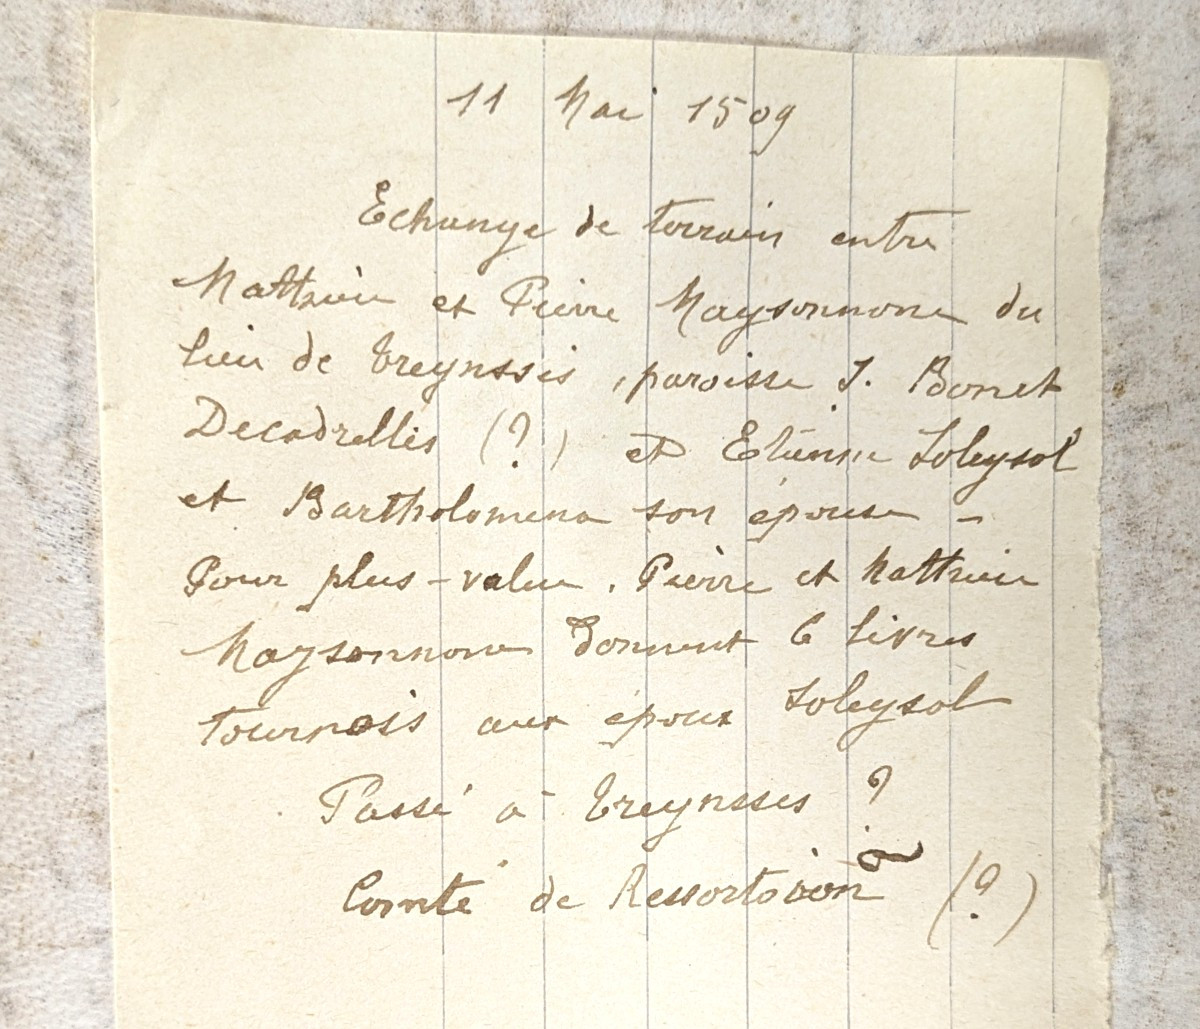 11 Mai 1509
Echange de terrain entre
Matthieu et Pierre Maysonnone du
lieu de Treynssis, paroisse S. Bonet
Decadrellis (?) et Etienne Soleysol
et Bartholomena son épouse -
Pour plus-value, Pierre et Matthieu
Maysonnone donnent 6 livres
tournois aux époux Soleysol
Passé à Treynsses ?
Comté de (?)